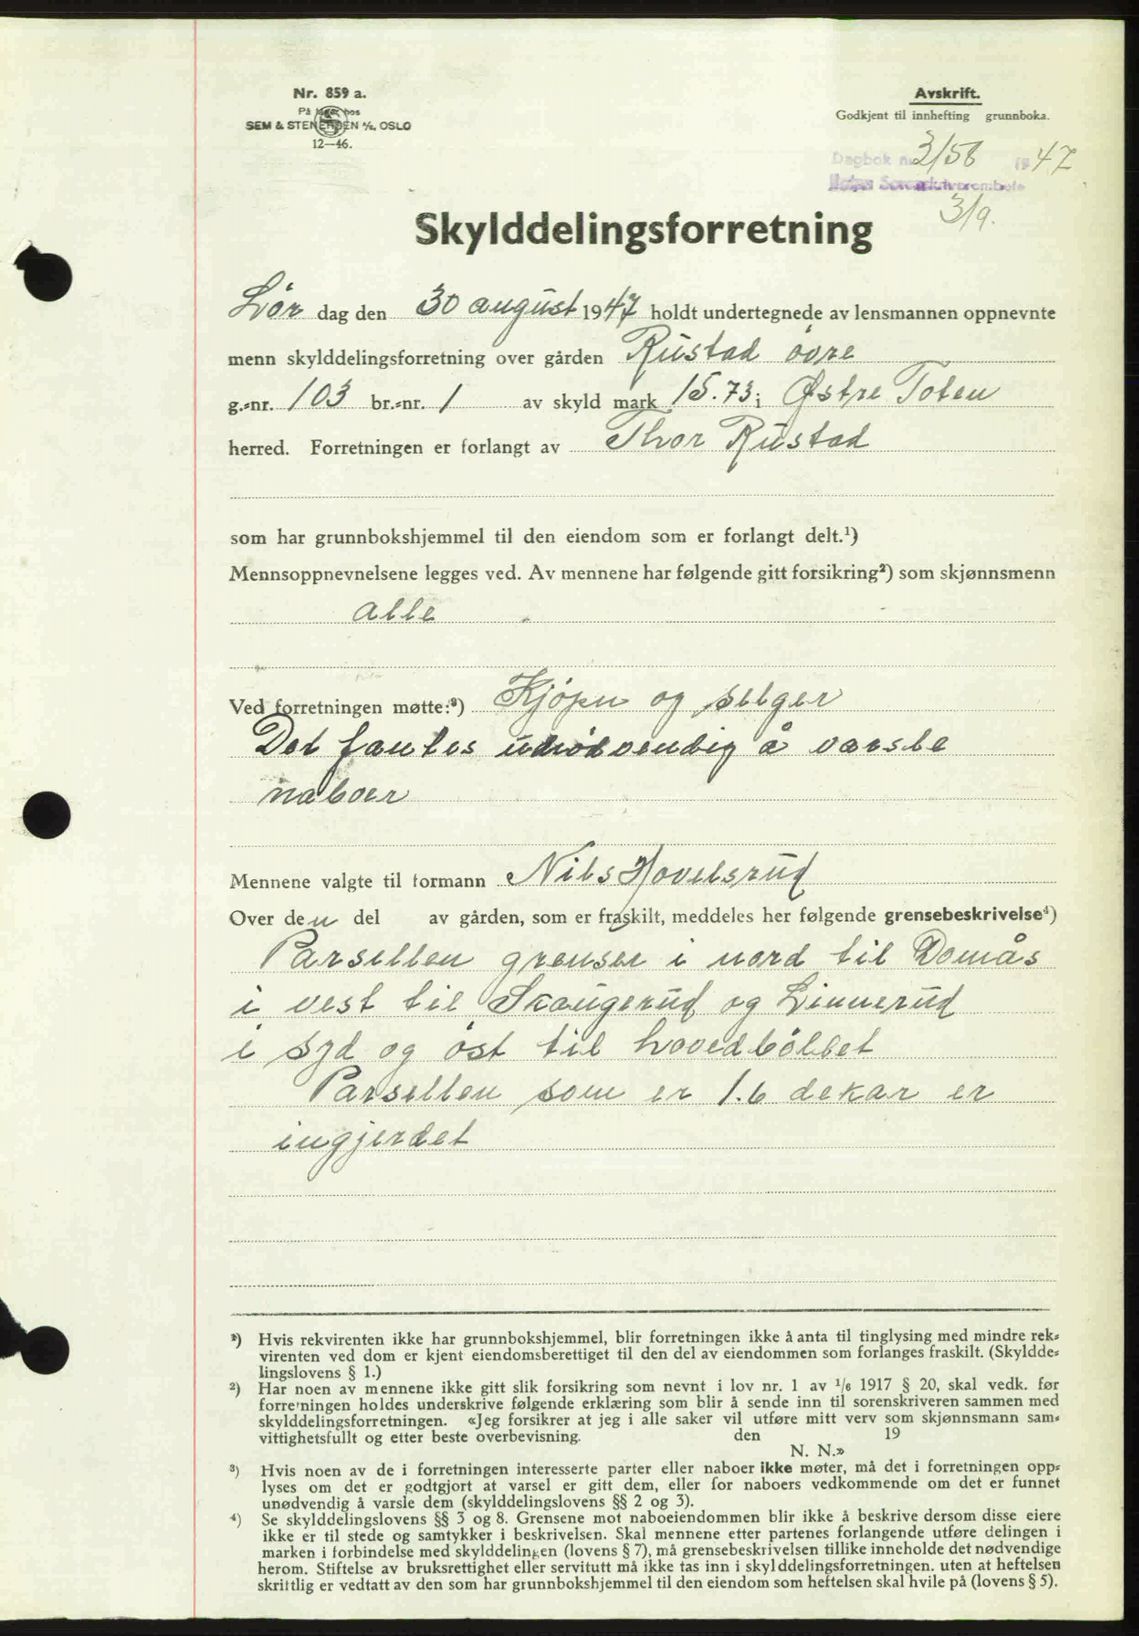 Nr. 859 a.
På lager hos
SEM & STENERSEN A/S, OSLO
12—46.
Avskrift.
Godkjent til innhefting grunnboka.
Dagbok nr. 3158 1947
3/9.
Skylddelingsforretning
Lør dag den 30 august 1947 holdt undertegnede av lensmannen oppnevnte
menn skylddelingsforretning over gården Rustad øvre
g.-nr. 103 br.-nr. 1 av skyld mark 15.73 i Østre Toten
herred. Forretningen er forlangt av Thor Rustad
som har grunnbokshjemmel til den eiendom som er forlangt delt.¹)
Mennsoppnevnelsene legges ved. Av mennene har følgende gitt forsikring²) som skjønnsmenn
alle
Ved forretningen møtte:³) Kjöper og selger
Det fantes unödvendig å varsle
naboer
Mennene valgte til formann Nils Hovelsrud
Over den del av gården, som er fraskilt, meddeles her følgende grensebeskrivelse⁴)
Parsellen grenser i nord til Domås
i vest til Skaugerud og Linnerud
i syd og öst til hovedbölet
Parsellen som er 1.6 dekar er
ingjerdet
¹) Hvis rekvirenten ikke har grunnbokshjemmel, blir forretningen ikke å anta til tinglysing med mindre rek-
virenten ved dom er kjent eiendomsberettiget til den del av eiendommen som forlanges fraskilt. (Skyldde-
lingslovens § 1.)
²) Har noen av mennene ikke gitt slik forsikring som nevnt i lov nr. 1 av 1/6 1917 § 20, skal vedk. før
forretningen holdes underskrive følgende erklæring som blir å sende inn til sorenskriveren sammen med
skylddelingsforretningen. «Jeg forsikrer at jeg i alle saker vil utføre mitt verv som skjønnsmann sam-
vittighetsfullt og etter beste overbevisning. den 19
N. N.»
³) Hvis noen av de i forretningen interesserte parter eller naboer ikke møter, må det i forretningen opp-
lyses om det er godtgjort at varsel er gitt dem, eller for naboers vedkommende om det er funnet
unødvendig å varsle dem (skylddelingslovens §§ 2 og 3).
⁴) Se skylddelingslovens §§ 3 og 8. Grensene mot naboeiendommen blir ikke å beskrive dersom disse eiere
ikke er til stede og samtykker i beskrivelsen. Skal mennene etter partenes forlangende utføre delingen i
marken i forbindelse med skylddelingen (lovens § 7), må grensebeskrivelsen tillike inneholde det nødvendige
herom. Stiftelse av bruksrettighet eller servitutt må ikke tas inn i skylddelingsforretningen. uten at heftelsen
skriftlig er vedtatt av den som har grunnbokshjemmel til den eiendom som heftelsen skal hvile på (lovens § 5).